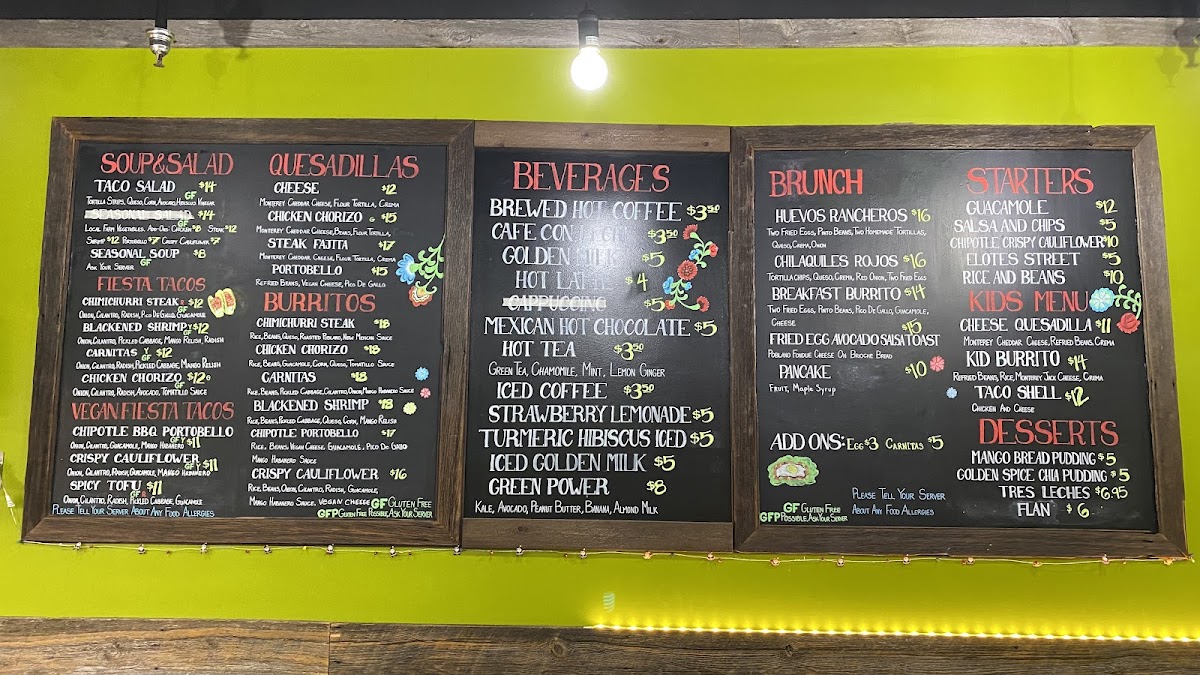 SOUP&SALAD
TACO SALAD $14
GF
TORTILLA STRIPS, QUESO, CORN, AVOCADO, HIBISCUS VINEGAR
SEASONAL SALAD $14
GF
LOCAL FARM VEGETABLES. ADD-ONS: CHICKEN $8 STEAK $12
SHRIMP $12 PORTOBELLO $7 CRISPY CAULIFLOWER $7
SEASONAL SOUP $8
ASK YOUR SERVER GF
FIESTA TACOS
CHIMICHURRI STEAK $12
ONION, CILANTRO, RADISH, PICO DE GALLO, GUACAMOLE
BLACKENED SHRIMP $12
ONION, CILANTRO, PICKLED CABBAGE, MANGO RELISH, RADISH
CARNITAS $12
ONION, CILANTRO, RADISH, PICKLED CABBAGE, MANGO RELISH
CHICKEN CHORIZO $12
ONION, CILANTRO, RADISH, AVOCADO, TOMATILLO SAUCE
VEGAN FIESTA TACOS
CHIPOTLE BBQ PORTOBELLO
ONION, CILANTRO, GUACAMOLE, MANGO HABANERO $11
CRISPY CAULIFLOWER $11
ONION, CILANTRO, RADISH, GUACAMOLE, MANGO HABANERO
SPICY TOFU $11
ONION, CILANTRO, RADISH, PICKLED CABBAGE, GUACAMOLE
PLEASE TELL YOUR SERVER ABOUT ANY FOOD ALLERGIES
QUESADILLAS
CHEESE $12
MONTEREY CHEDDAR CHEESE, FLOUR TORTILLA, CREMA
CHICKEN CHORIZO $15
MONTEREY CHEDDAR CHEESE, BEANS, FLOUR TORTILLA,
STEAK FAJITA $17
MONTEREY CHEDDAR CHEESE, FLOUR TORTILLA, CREMA
PORTOBELLO $15
REFRIED BEANS, VEGAN CHEESE, PICO DE GALLO
BURRITOS
CHIMICHURRI STEAK $18
RICE, BEANS, QUESO, ROASTED POBLANO, NEW MEXICAN SAUCE
CHICKEN CHORIZO $18
RICE, BEANS, GUACAMOLE, CORN, QUESO, TOMATILLO SAUCE
CARNITAS $18
RICE, BEANS, PICKLED CABBAGE, CILANTRO, ONION, MANGO HABANERO SAUCE
BLACKENED SHRIMP $18
RICE, BEANS, PICKLED CABBAGE, QUESO, CORN, MANGO RELISH
CHIPOTLE PORTOBELLO $17
RICE, BEANS, VEGAN CHEESE, GUACAMOLE, PICO DE GALLO
MANGO HABANERO SAUCE
CRISPY CAULIFLOWER $16
RICE, BEANS, ONION, CILANTRO, RADISH, GUACAMOLE,
MANGO HABANERO SAUCE, VEGAN CHEESE
GF GLUTEN FREE
GFP GLUTEN FREE POSSIBLE, ASK YOUR SERVER
BEVERAGES
BREWED HOT COFFEE $3.50
CAFE CON LECHE $3.50
GOLDEN MILK $5
HOT LATTE $4
CAPPUCCINO $5
MEXICAN HOT CHOCOLATE $5
HOT TEA $3.50
GREEN TEA, CHAMOMILE, MINT, LEMON GINGER
ICED COFFEE $3.50
STRAWBERRY LEMONADE $5
TURMERIC HIBISCUS ICED $5
ICED GOLDEN MILK $5
GREEN POWER $8
KALE, AVOCADO, PEANUT BUTTER, BANANA, ALMOND MILK
BRUNCH
HUEVOS RANCHEROS $16
TWO FRIED EGGS, PINTO BEANS, TWO HOMEMADE TORTILLAS,
QUESO, CREMA, ONION
CHILAQUILES ROJOS $16
TORTILLA CHIPS, QUESO, CREMA, RED ONION, TWO FRIED EGGS
BREAKFAST BURRITO $14
TWO FRIED EGGS, PINTO BEANS, PICO DE GALLO, GUACAMOLE,
CHEESE
$15
FRIED EGG AVOCADO SALSA TOAST
POBLANO FONDUE CHEESE ON BRIOCHE BREAD
PANCAKE $10
FRUIT, MAPLE SYRUP
ADD ONS: EGG $3 CARNITAS $5
GF GLUTEN FREE
GFP POSSIBLE, ASK YOUR SERVER
PLEASE TELL YOUR SERVER
ABOUT ANY FOOD ALLERGIES
STARTERS
GUACAMOLE $12
SALSA AND CHIPS $5
CHIPOTLE CRISPY CAULIFLOWER $10
ELOTES STREET $5
RICE AND BEANS $10
KIDS MENU
CHEESE QUESADILLA $11
MONTEREY CHEDDAR CHEESE, REFRIED BEANS, CREMA
KID BURRITO $14
REFRIED BEANS, RICE, MONTEREY JACK CHEESE, CREMA
TACO SHELL $12
CHICKEN AND CHEESE
DESSERTS
MANGO BREAD PUDDING $5
GOLDEN SPICE CHIA PUDDING $5
TRES LECHES $6.95
FLAN $6